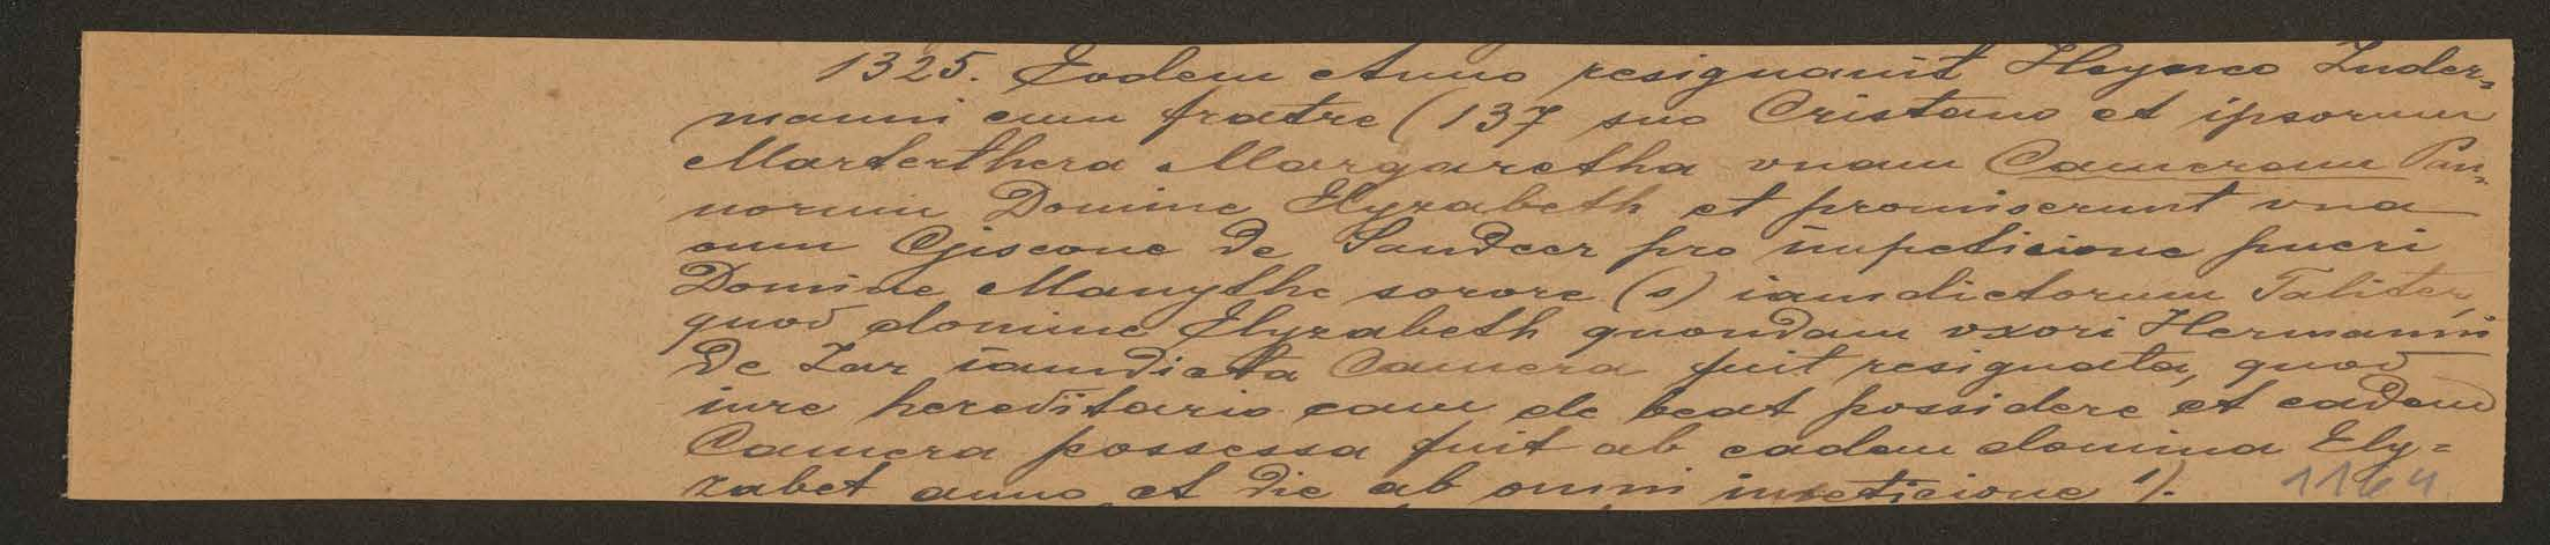 1325. Eodem Anno resignauit Heynco Inder-
manni cum fratre (137 suo Cristano et ipsorum
Marterthera Margaretha vnam Cameram Pan-
norum Domine Elyzabeth et promiserunt vna
cum Giscone de Sandecz pro inpeticione pueri
Domine Manythe sorore (s) iamdictorum Taliter,
quod domine Elyzabeth quondam vxori Hermanni
de Zar iamdicta Camera fuit resignata, quod
iure hereditario eam de beat possidere et eadem
Camera possessa fuit ab eadem domina Ely=
zabet anno et die ab omni inpeticione 1).
1164